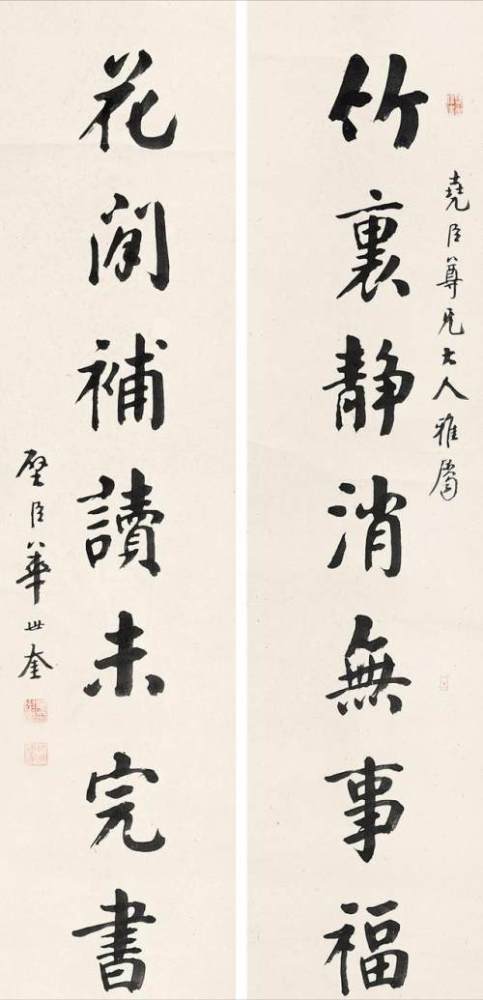 堯臣尊兄大人雅屬
竹裏靜消無事福
花間補讀未完書
壁臣華世奎